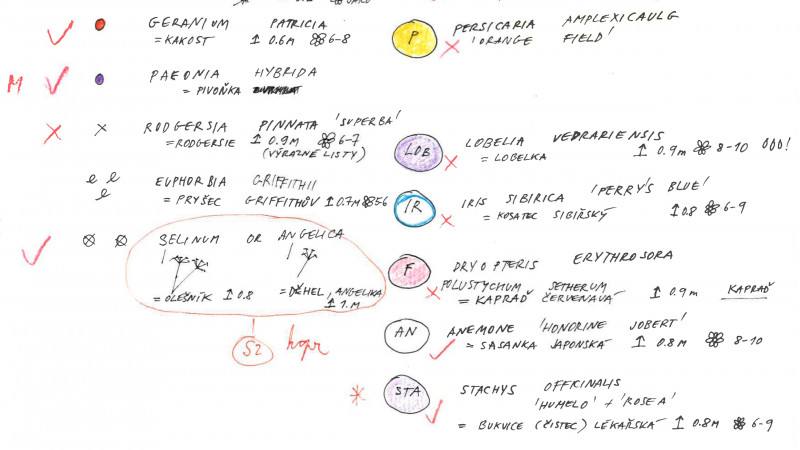 GERANIUM PATRICIA
= KAKOST ↑ 0.6M 6-8
M
PAEONIA HYBRIDA
= PIVOŇKA
RODGERSIA PINNATA 'SUPERBA'
= RODGERSIE ↑ 0.9M 6-7
(VÝRAZNÉ LISTY)
EUPHORBIA GRIFFITHII
= PRYŠEC GRIFFITHŮV ↑ 0.7M 56
SELINUM OR ANGELICA
= OLEŠNÍK ↑ 0.8 = DĚHEL, ANGELIKA
↑ 1.M
S2 kopr
P PERSICARIA AMPLEXICAULG
'ORANGE FIELD'
LOB LOBELIA VEDRARIENSIS
= LOBELKA ↑ 0.9M 8-10
IR IRIS SIBIRICA 'PERRY'S BLUE'
= KOSATEC SIBIŘSKÝ ↑ 0.8 6-9
F DRYOPTERIS ERYTHROSORA
POLUSTYCHUM SETHERUM
= KAPRAĎ ČERVENAVÁ ↑ 0.9M KAPRAĎ
AN ANEMONE 'HONORINE JOBERT'
= SASANKA JAPONSKÁ ↑ 0.8M 8-10
STA STACHYS OFFKINALIS
'HUMELO' + 'ROSEA'
= BUKVICE (ČISTEC) LÉKAŘSKÁ ↑ 0.8M 6-9